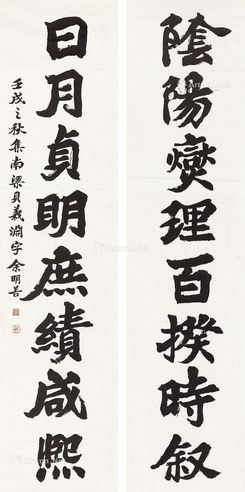 陰陽燮理百揆時叙
日月貞明庶績咸熙
壬戌之秋集南梁貝義淵字余明善